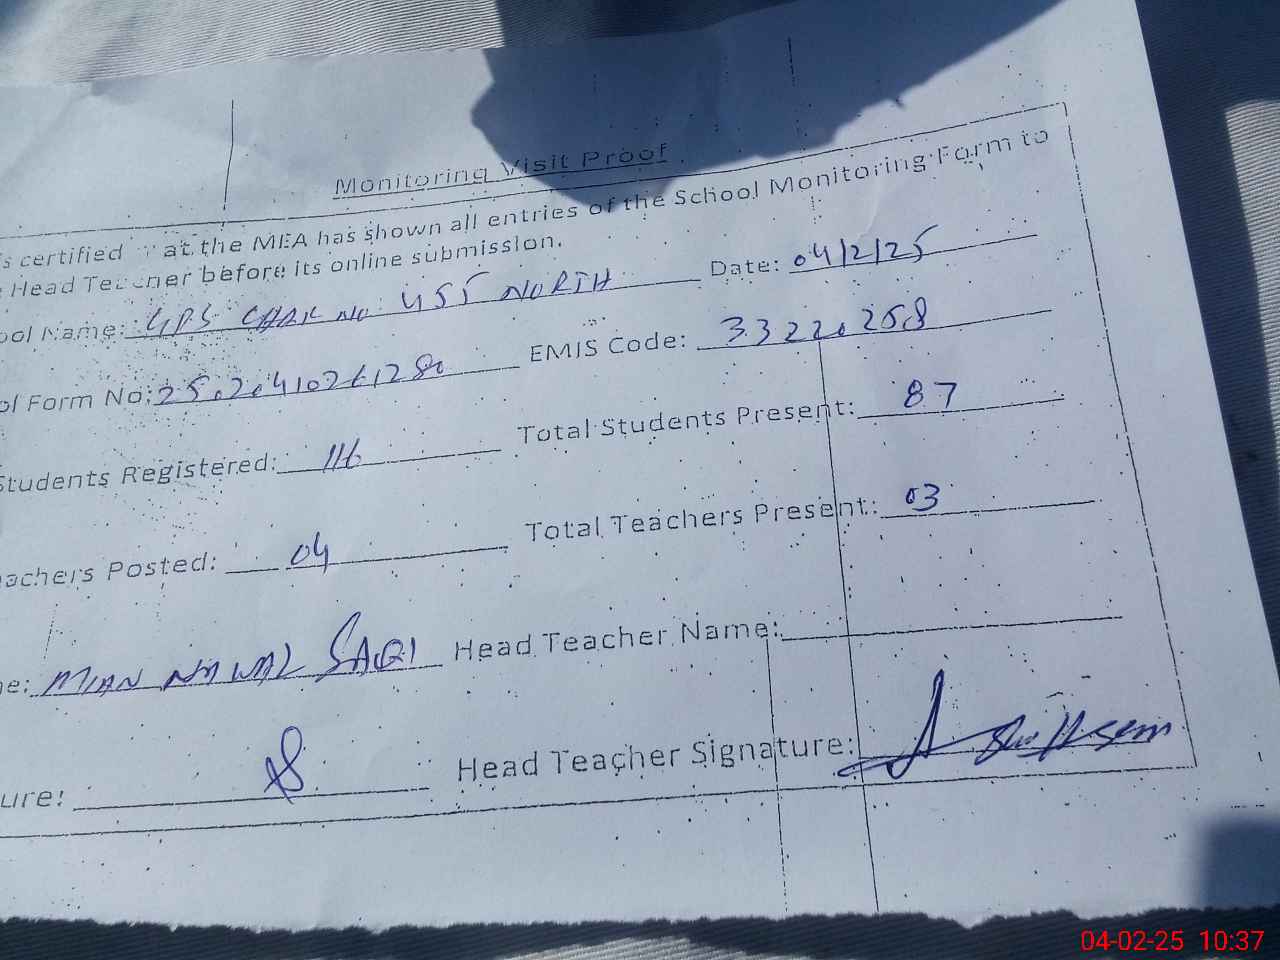 Monitoring Visit Proof
s certified at the MEA has shown all entries of the School Monitoring Form to
Head Teacher before its online submission.
ool Name: GPS CHAK No. 455 NORTH Date: 04/2/25
ol Form No: 25020410261280 EMIS Code: 33220258
Students Registered: 116 Total Students Present: 87
achers Posted: 04 Total Teachers Present: 03
e: MIAN NAWAZ SAQI Head Teacher Name:
ure: Head Teacher Signature:
04-02-25 10:37